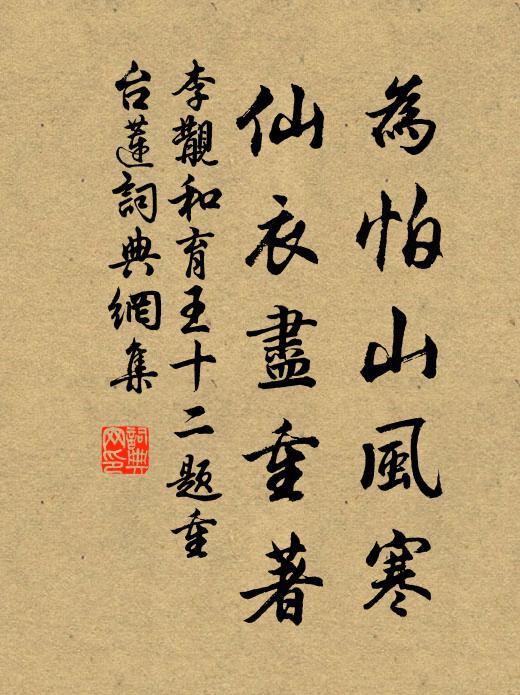 為怕山風寒
仙衣盡重著
李觀和育王十二題重
台蓮詞典網集
詞典
网印